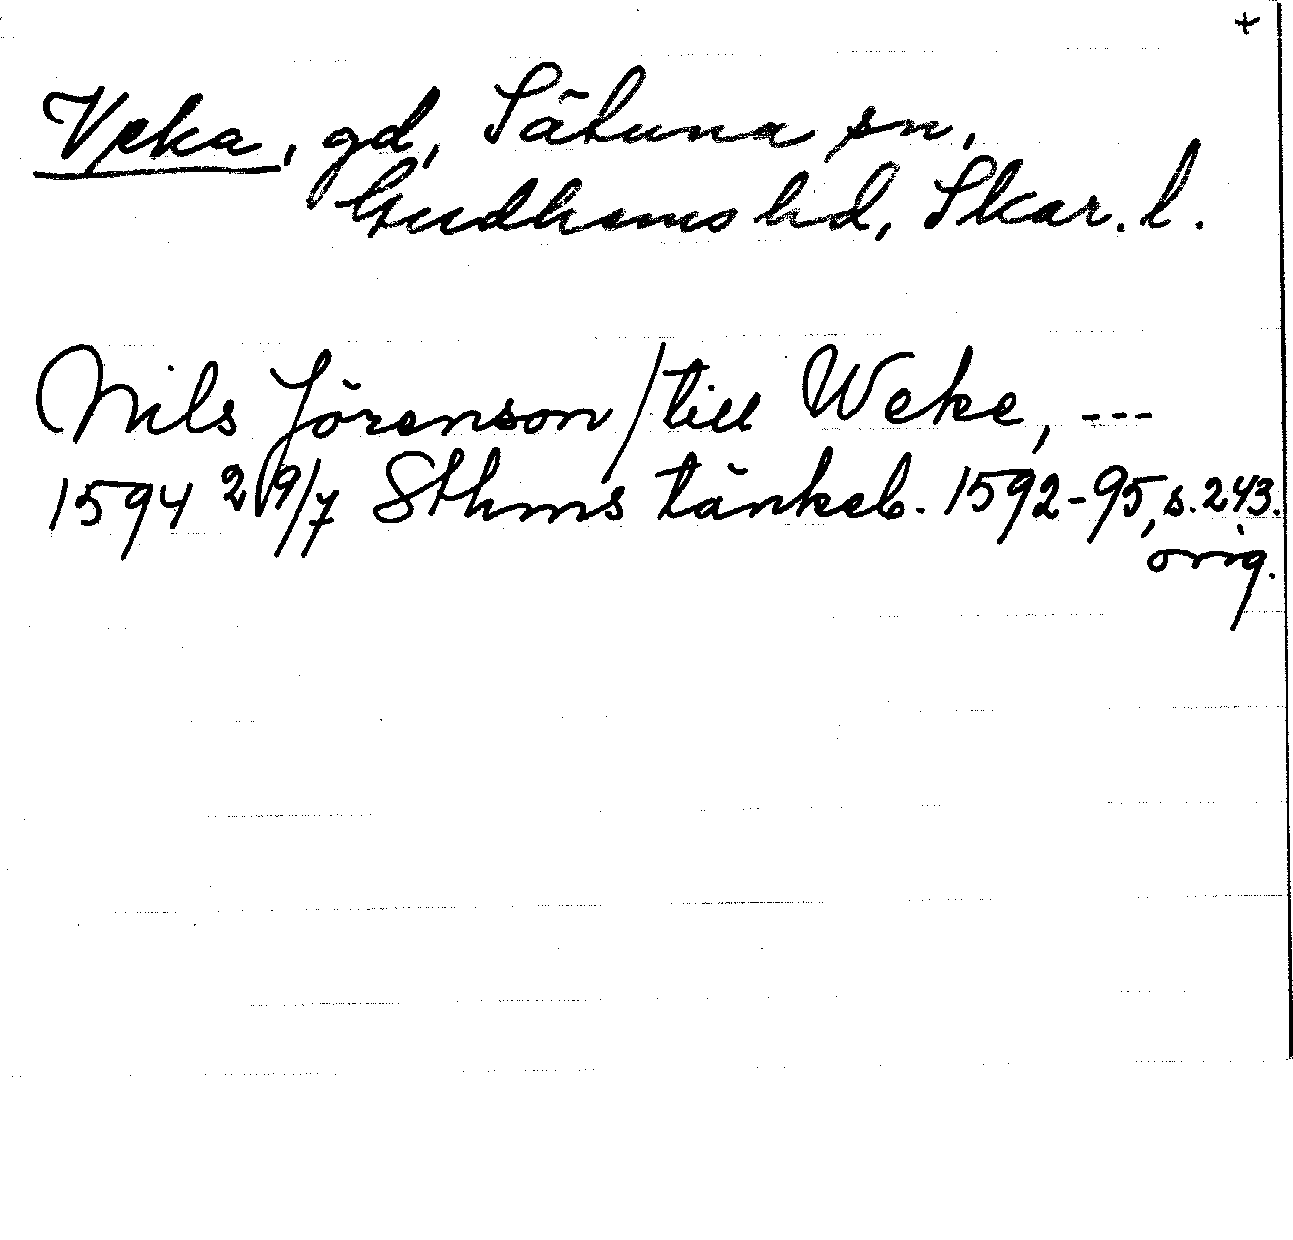 +
Veka, gd, Sätuna sn,
Gudhems hd, Skar. l.
Nils Jörenson / till Weke, ---
1594 29/7 Sthms tänkeb. 1592-95, s. 243.
orig.